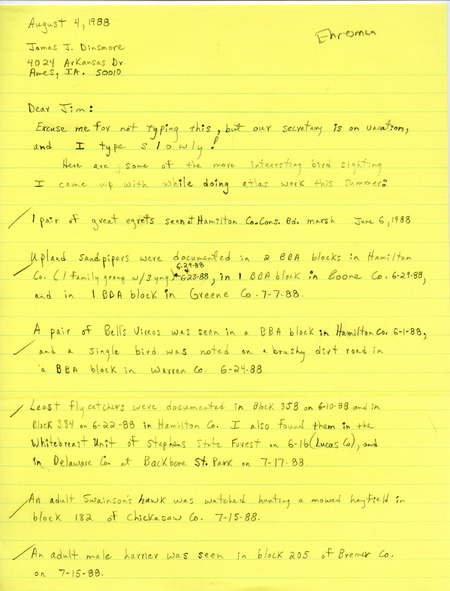 August 4, 1988
Ehresman
James J. Dinsmore
4024 Arkansas Dr
Ames, IA. 50010
Dear Jim:
Excuse me for not typing this, but our secretary is on vacation,
and I type s l o w l y!
Here are some of the more interesting bird sighting
I came up with while doing atlas work this summer:
1 pair of great egrets seen at Hamilton Co. Cons. Bd. marsh June 6, 1988
Upland Sandpipers were documented in 2 BBA blocks in Hamilton
6-29-88
Co. (1 family group w/3 yng) 6-23-88, in 1 BBA block in Boone Co. 6-29-88,
and in 1 BBA block in Greene Co. 7-7-88.
A pair of Bell's Vireos was seen in a BBA block in Hamilton Co. 6-1-88,
and a single bird was noted on a brushy dirt road in
a BBA block in Warren Co. 6-24-88
Least flycatchers were documented in Block 358 on 6-10-88 and in
Block 384 on 6-22-88 in Hamilton Co. I also found them in the
Whitebreast Unit of Stephens State Forest on 6-16 (Lucas Co), and
in Delaware Co. at Backbone St. Park on 7-17-88.
An adult Swainson's hawk was watched hunting a mowed hayfield in
block 182 of Chickasaw Co. 7-15-88.
An adult male harrier was seen in block 205 of Bremer Co.
on 7-15-88.